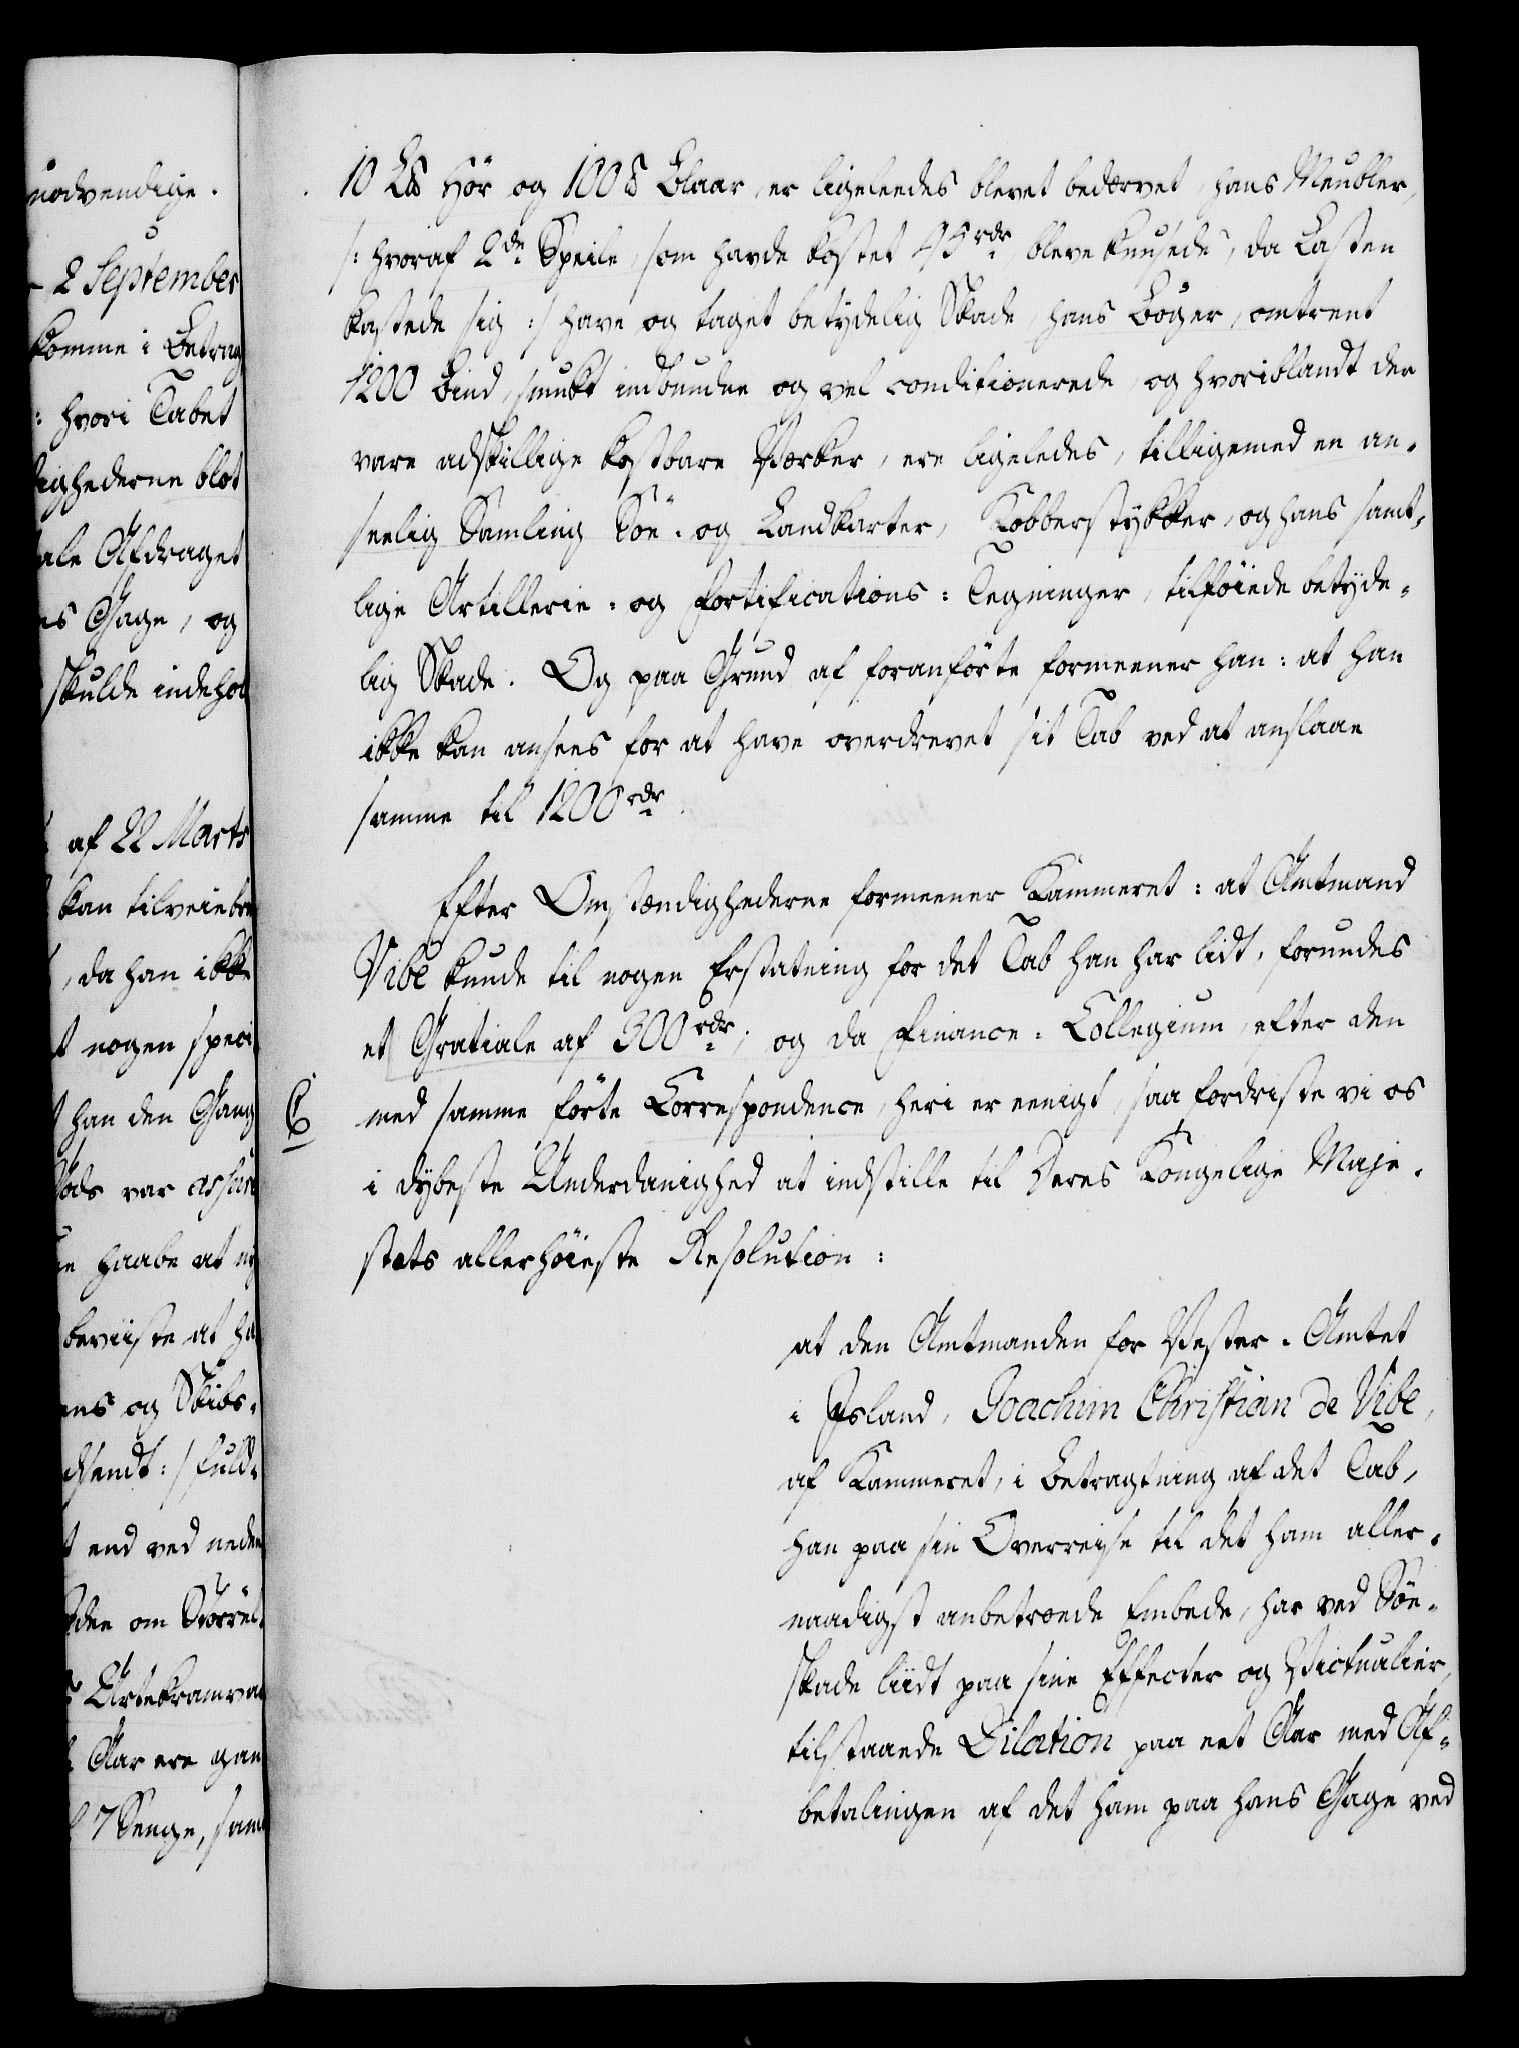 nødvendige.
2 September
komme i Betrag
: hvori Tabet
lighederne blot
ale Afdraget
ns Gage, og
skulde indehol
af 22 Marts
kan tilveiebre
, da han ikke
t nogen speci
han den Gang
Gods var assur
haabe at ny
beviiste at ha
ens og Skibs-
dsendt :/ fuld-
t end ved neden
den om Størrel-
Urtekramva
Aar ere gan
7 Senge, sam
10 L℔ Hør og 100 ℔ Blaar, er ligeleedes blevet bedærvet, hans Meubler,
/: hvoraf 2de Speile, som havde kostet 45 rdr, bleve knusede, da Lasten
kastede sig :/ have og taget betydelig Skade, hans Bøger, omtrent
1200 Bind, smukt indbundne og vel conditionerede, og hvoriblandt der
vare adskillige kostbare Værker, ere ligeledes, tilligemed en an-
seelig Samling Søe- og Landkarter, Kobberstykker, og hans samt-
lige Artillerie- og Fortifications-Tegninger, tilføiede betyde-
lig Skade. Og paa Grund af foranførte formeener han: at han
ikke kan ansees for at have overdrevet sit Tab ved at anslaae
samme til 1200 rdr.
Efter Omstændighederne formeener Kammeret: at Amtmand
Vibe kunde til nogen Erstatning for det Tab han har lidt, forundes
et Gratiale af 300 rdr; og da Finance-Collegium, efter den
med samme førte Correspondence, heri er eenigt, saa fordriste vi os
i dybeste Underdanighed at indstille til Deres Kongelige Maje-
stæts allerhøieste Resolution:
at den Amtmanden for Vester-Amtet
i Island, Joachim Christian de Vibe,
af Kammeret, i Betragtning af det Tab,
han paa sin Overreise til det ham aller-
naadigst anbetroede Embede, har ved Søe-
skade liidt paa sine Effecter og Victualier,
tilstaaede Dilation paa eet Aar med Af-
betalingen af det ham paa hans Gage ved